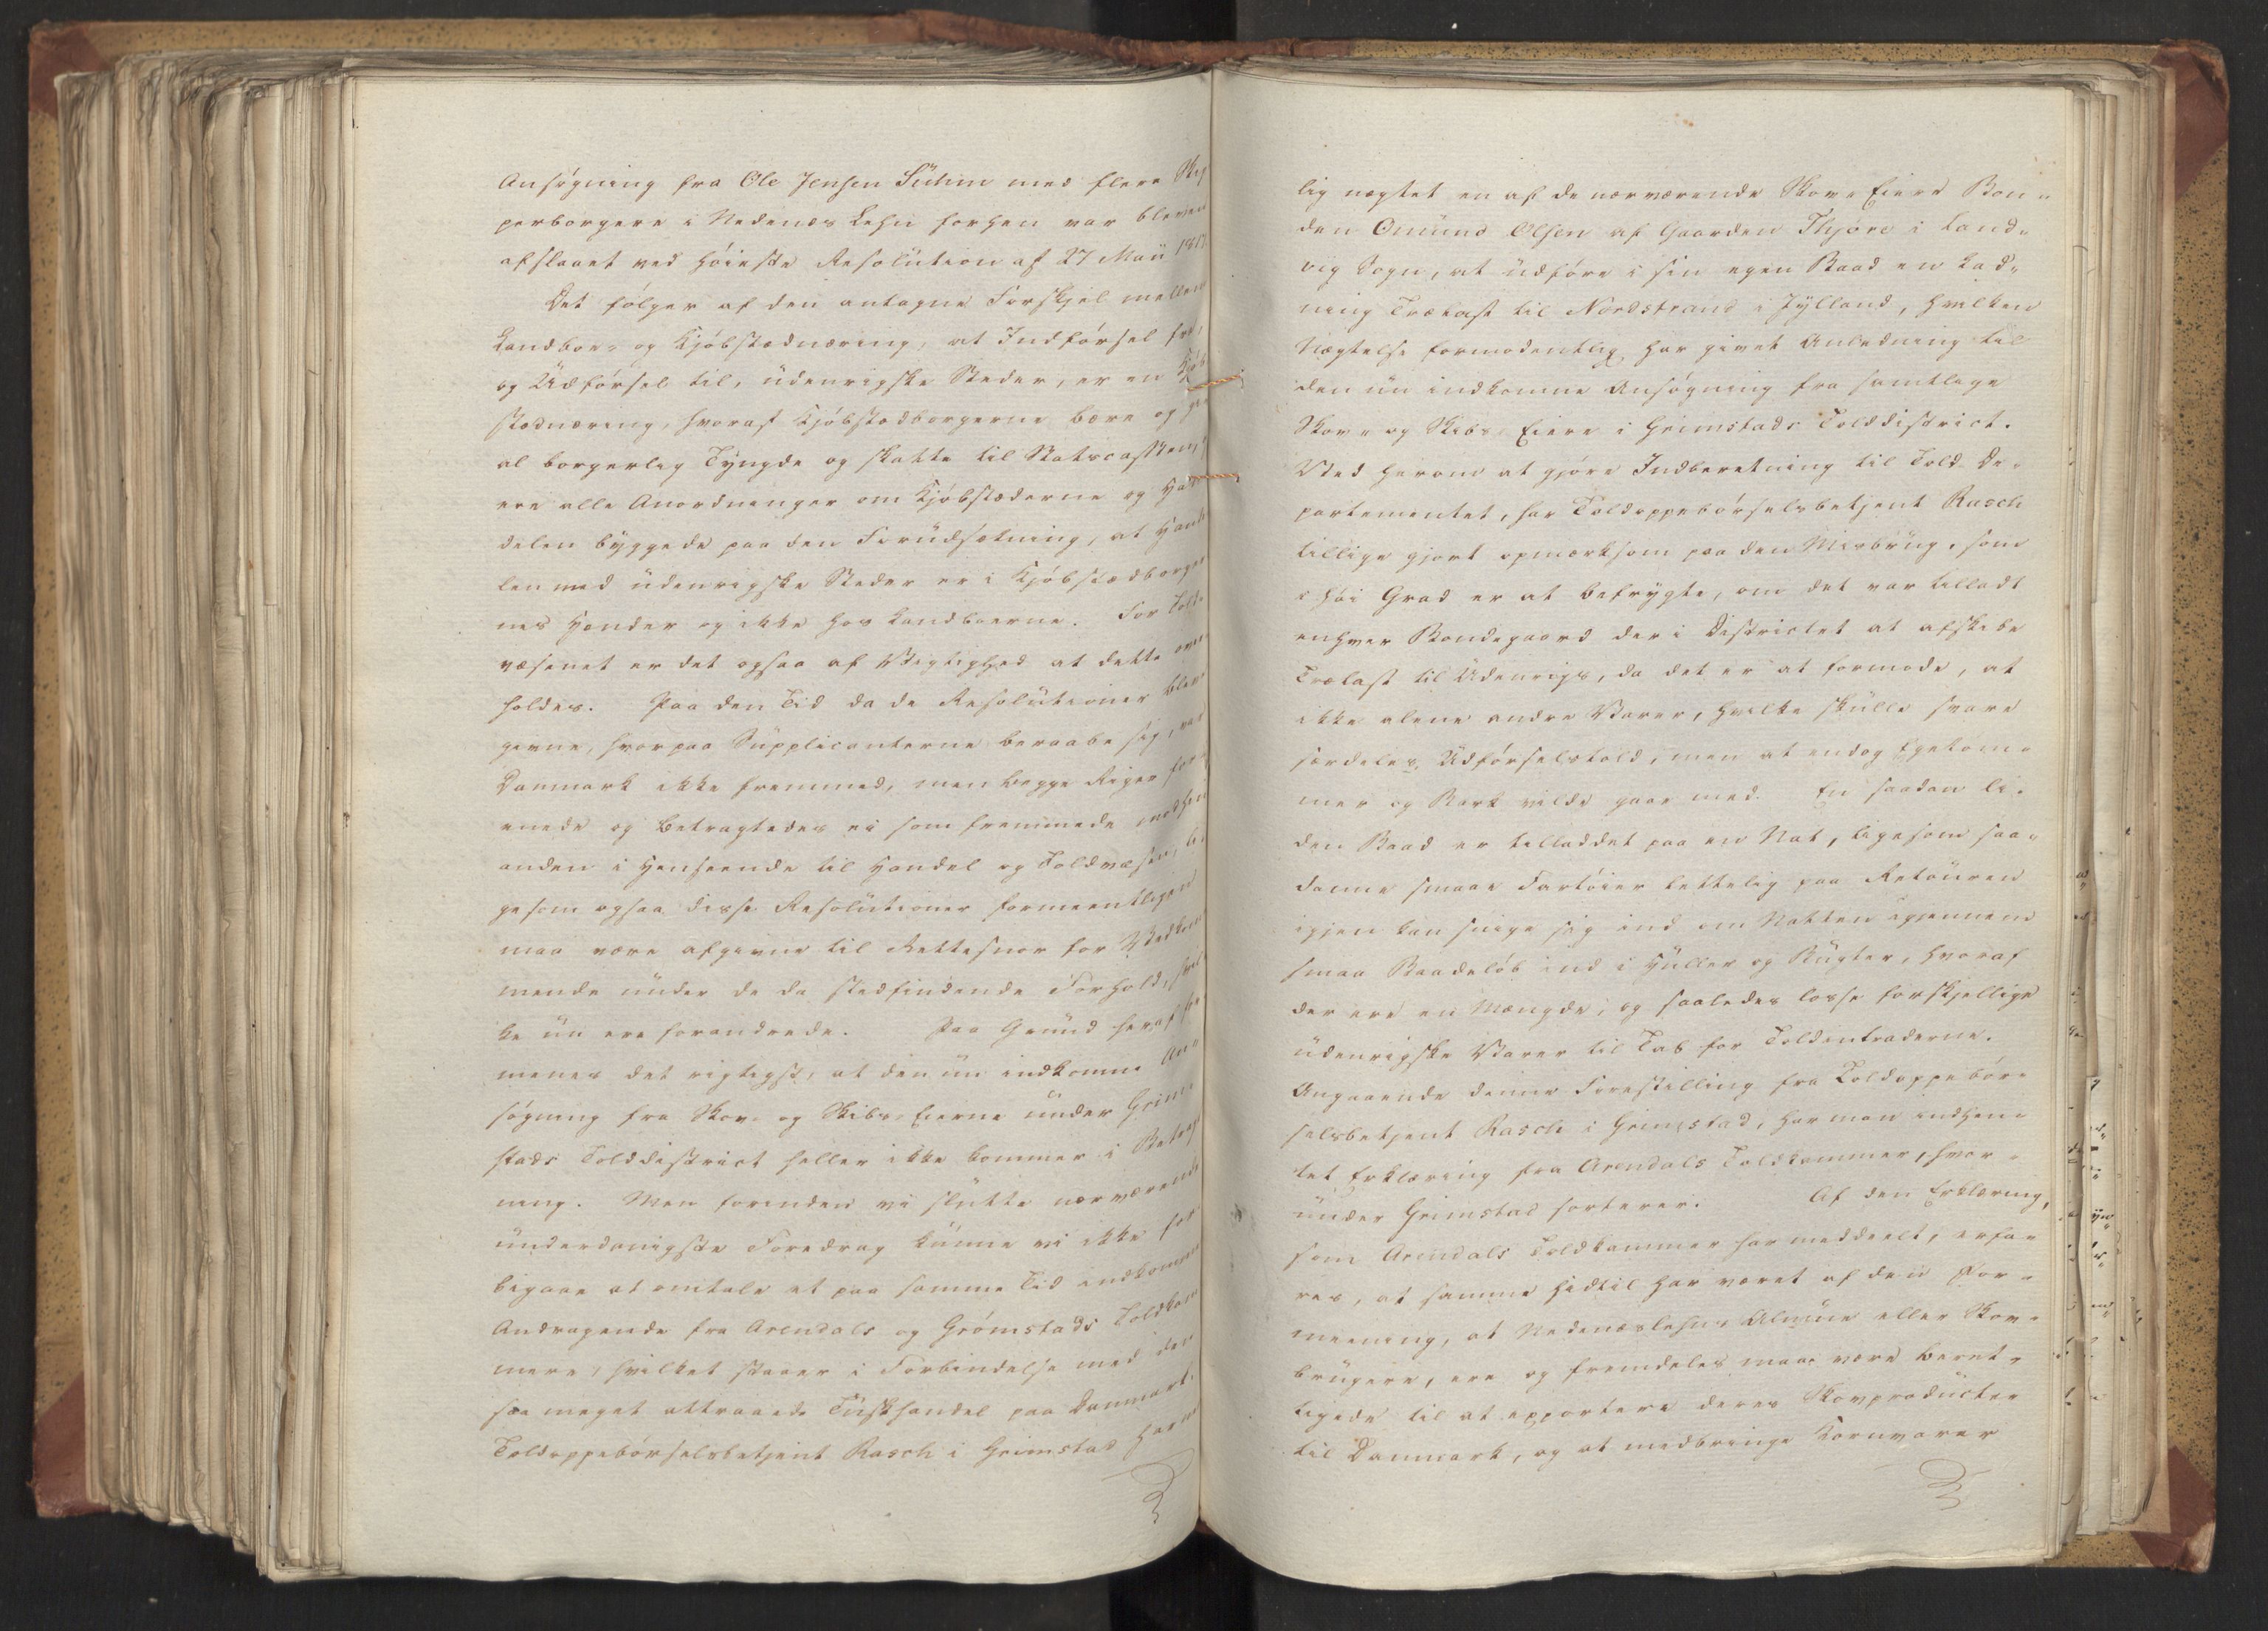 Ansøgning fra Ole Jensen Sühm med flere Skip
perborgere i Nedenæs Lehn forhen var bleven
afslaaet ved høieste Resolution af 27 Maii 1817.
Det følger af den antagne Forskjel mellem
Landboe- og Kjøbstædnæring, at Indførsel fra,
og Udførsel til, udenrigske Steder, er en Kjøb
stædnæring, hvoraf Kjøbstædborgerne bære og
al borgerlig Tyngde og skatte til Statscassen,
ere alle Anordninger om Kjøbstæderne og Han
delen byggede paa den Forudsætning, at Hande
len med udenrigske Steder er i Kjøbstædborger
nes Hænder og ikke hos Landboerne. For Told
væsenet er det ogsaa af Vigtighed at dette over
holdes. Paa den Tid da de Resolutioner bleve
givne, hvorpaa Supplicanterne beraabe sig, var
Danmark ikke fremmed, men begge Riger for
enede og betragtedes ei som fremmede mod hin
anden i Henseende til Handel og Toldvæsen, li
gesom ogsaa disse Resolutioner formeentligen
maa være afgivne til Rettesnor for Vedkom
mende under de da stedfindende Forhold, hvil
ke nu ere forandrede. Paa Grund heraf for
menes det rigtigst, at den nu indkomne An
søgning fra Skov- og Skibs-Eierne under Grim
stads Tolddistrict heller ikke kommer i Betragt
ning. Men forinden vi slutte nærværende
underdanigste Foredrag kunne vi ikke for
bigaae at omtale et paa samme Tid indkommen
Andragende fra Arendals og Grømstads Toldkam
mere, hvilket staaer i Forbindelse med den
saa meget attraaede Tuskhandel paa Danmark.
Toldoppebørselsbetjent Rasch i Grimstad har
lig nægtet en af de nærværende Skov-Eiere Bon-
den Omund Olsen af Gaarden Thjøre i Land-
vig Sogn, at udføre i sin egen Baad en Lad-
ning Trælast til Nordstrand i Jylland, hvilken
Nægtelse formodentlig har givet Anledning til
den nu indkomne Ansøgning fra samtlige
Skov- og Skibs-Eiere i Grimstads Tolddistrict.
Ved herom at gjøre Indberetning til Told-De-
partementet, har Toldoppebørselsbetjent Rasch
tillige gjort opmærksom paa den Misbrug, som
i høi Grad er at befrygte, om det var tilladt
enhver Bondegaard der i Districtet at afskibe
Trælast til Udenrigs, da det er at formode, at
ikke alene andre Varer, hvilke skulle svare
særdeles Udførselstold, men at endog Egetøm-
mer og Bark vilde gaae med. En saadan li-
den Baad er tilladdet paa en Nat, ligesom saa-
danne smaae Fartøier lettelig paa Retouren
igjen kan snige sig ind om Natten igjennem
smaa Baadeløb ind i Huller og Bugter, hvoraf
der ere en Mængde, og saaledes losse forskjellige
udenrigske Varer til Tab for Toldintraderne.
Angaaende denne Forestilling fra Toldoppebør-
selsbetjent Rasch i Grimstad, har man indhen-
tet Erklæring fra Arendals Toldkammer, hvor-
under Grimstad sorterer. Af den Erklæring,
som Arendals Toldkammer har meddeelt, erfa-
res, at samme hidtil har været af den For-
meening, at Nedenæslehns Almue eller Skov-
brugere, ere og fremdeles maae være beret-
tigede til at exportere deres Skovproducter
til Danmark, og at medbringe Kornvarer